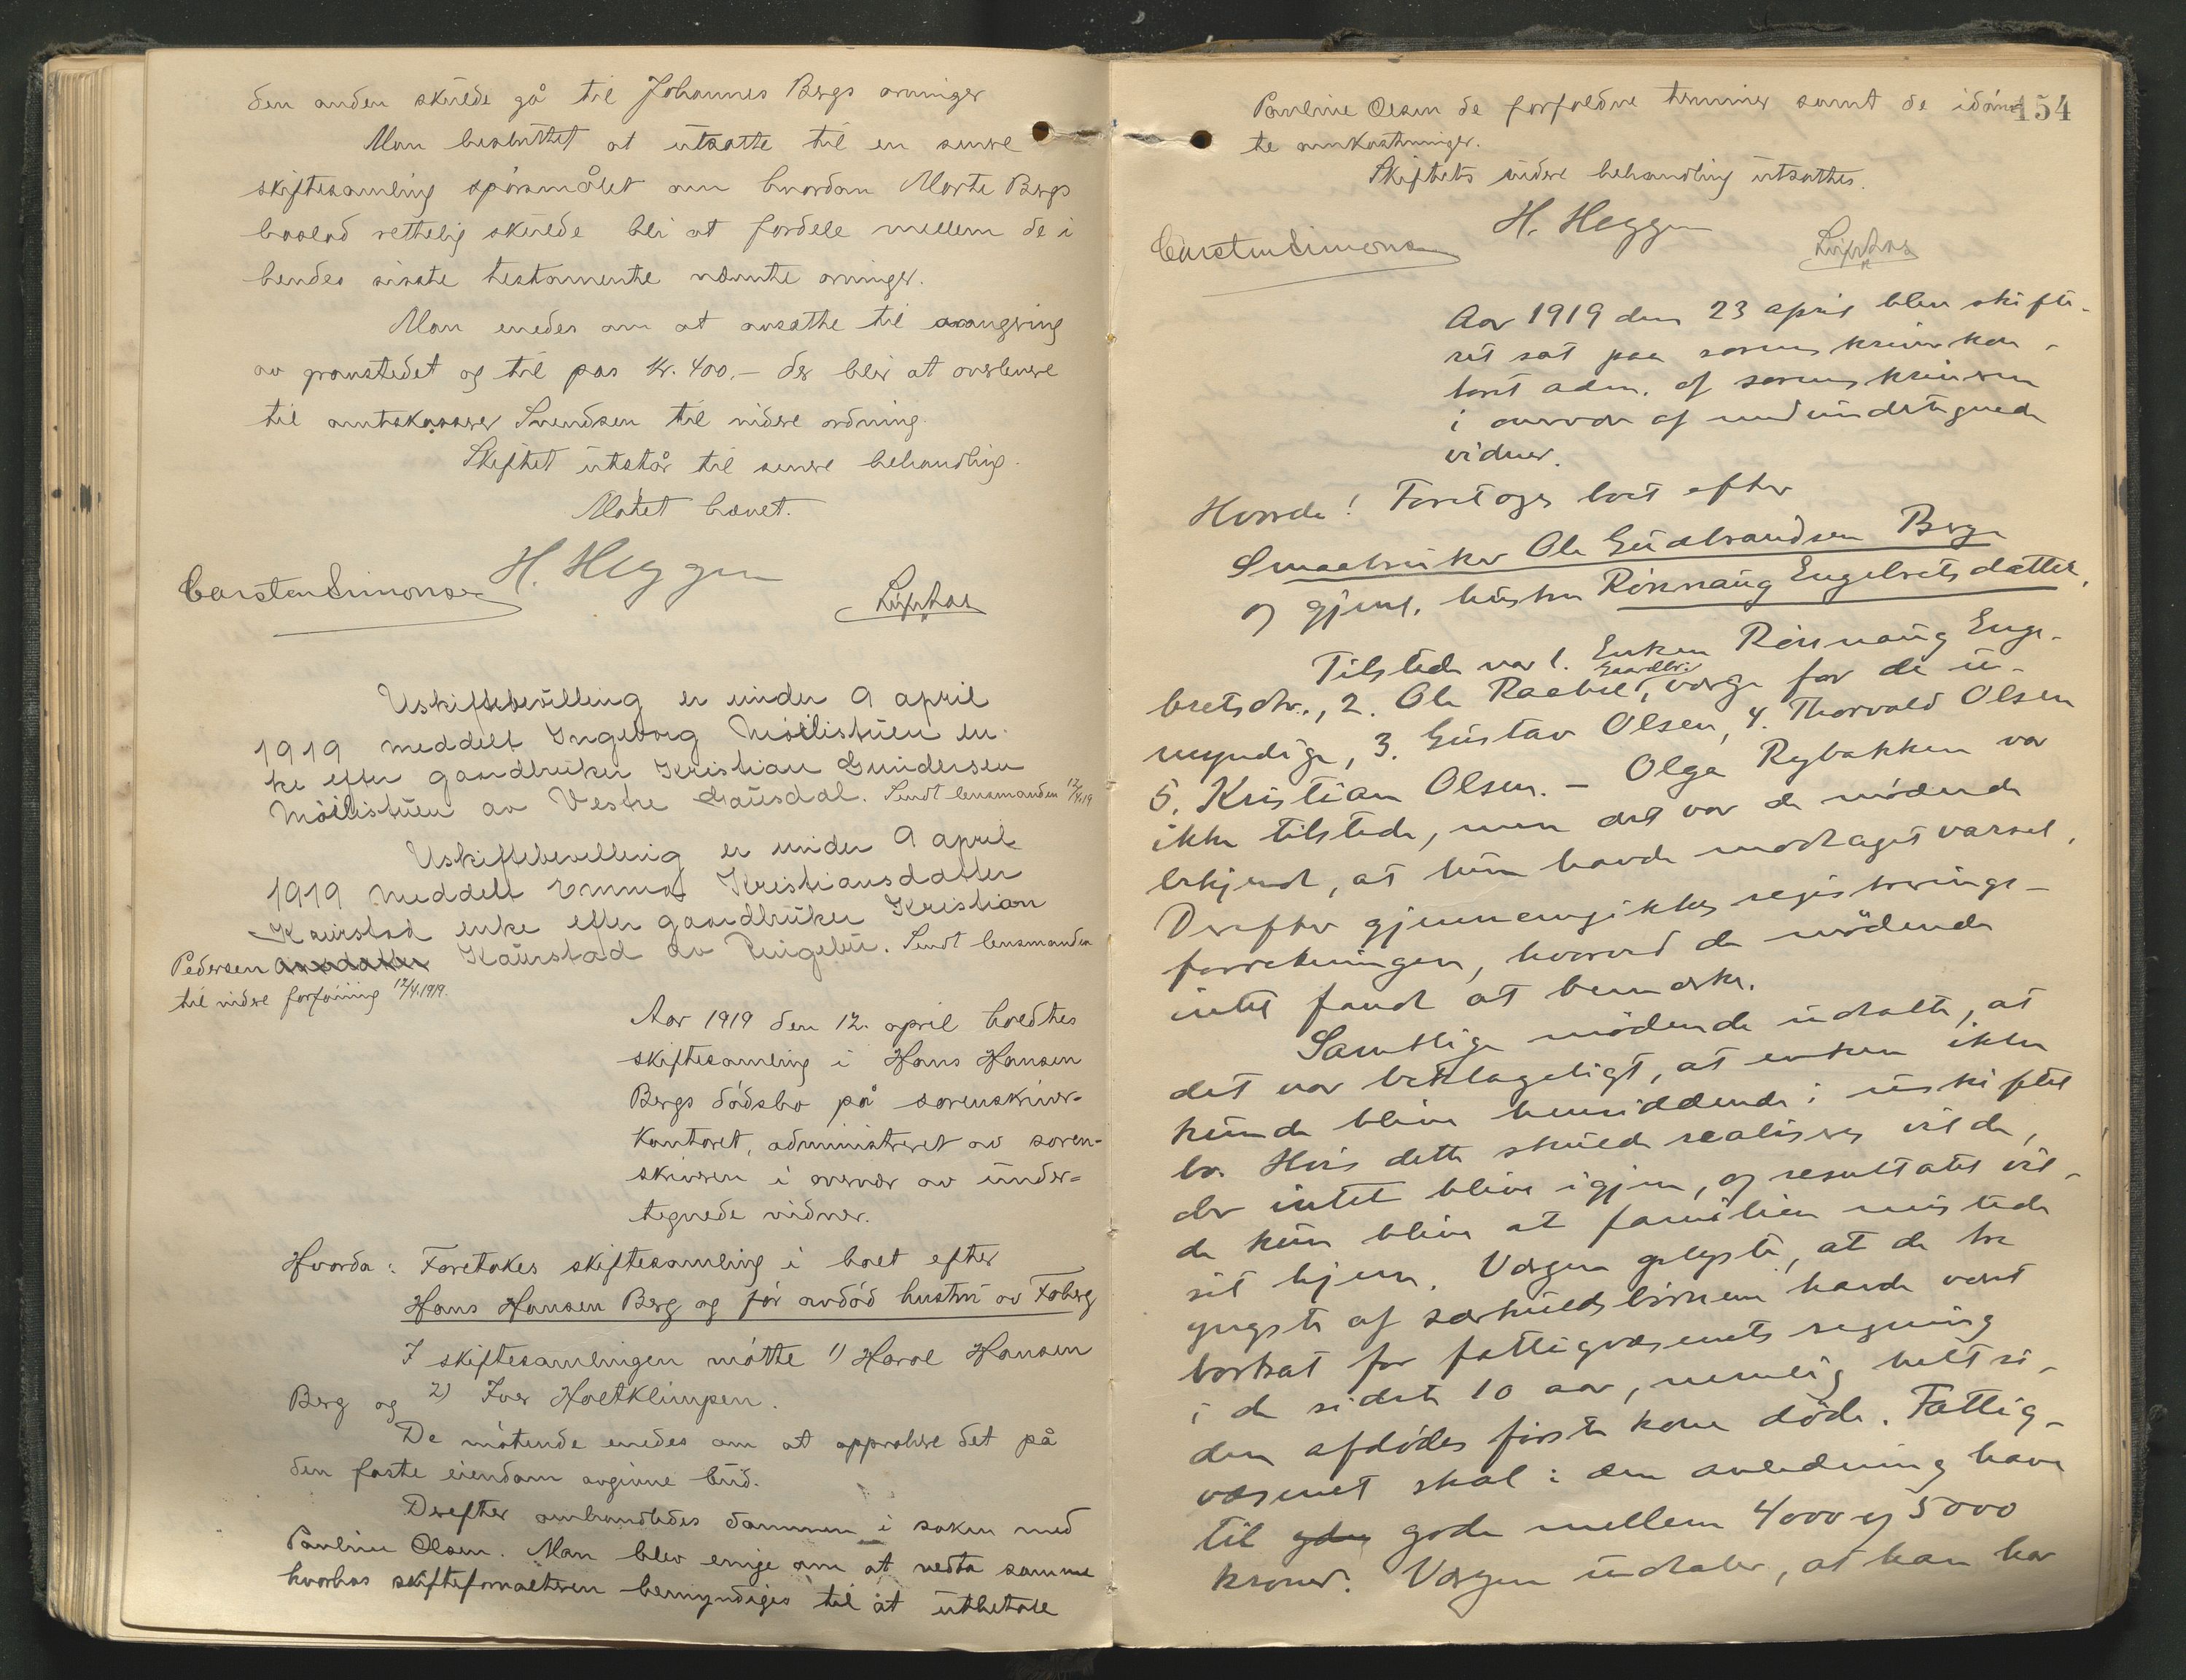 den anden skulde gå til Johannes Bergs arvinger
Man besluttet at utsætte til en senere
skiftesamling spørsmålet om hvordan Marte Bergs
boslod rettelig skulde bli at fordele mellem de i
hendes sisste testamente nævnte arvinger.
Man enedes om at avsætte til
av gravstedet og til pas kr. 400,- der blir at overlevere
til amtskasserer Svendsen til videre ordning.
Skiftet utstår til senere behandling.
Møtet hævet.
Carsten Simonsen H. Heggen
Uskiftebevilling er under 9 april
1919 meddelt Ingeborg Möllistuen en-
ke efter gaardbruker Kristian Gundersen
Möllistuen av Vestre Gausdal. Sendt lensmanden 12/4.19
Uskiftebevilling er under 9 april
1919 meddelt Emma Kristiansdatter
Kaurstad enke efter gaardbruker Kristian
Pedersen Kaurstad av Ringebu. Sendt lensmanden
til videre forføining 12/4.1919.
Aar 1919 den 12. april holdtes
skiftesamling i Hans Hansen
Bergs dødsbo på sorenskriver-
kontoret, administreret av soren-
skriveren i overvær av under-
tegnede vidner.
Hvorda: Foretokes skiftesamling i boet efter
Hans Hansen Berg og før avdød hustru av Foberg
I skiftesamlingen møtte 1) Harol Hansen
Berg og 2) Iver Holtklimpen.
De møtende enedes om at approbere det på
den faste eiendom avgivne bud.
Derefter omhandledes dommen i saken med
Pauline Olsen. Man blev enige om at vedta samme
hvorhos skifteforvalteren bemyndiges til at utbetale
154
Pauline Olsen de forfaldne terminer samt de idømt
te omkostninger.
Skiftets videre behandling utsattes.
H. Heggen
Carsten Simonsen
Aar 1919 den 23 april blev skifte-
ret sat paa sorenskriverkon-
toret adm. af sorenskriveren
i overvær af medundertegnede
vidner.
Hvorda! Foretoges boet efter
Smaabruker Ole Gudbrandsen Berge
og gjenl. hustru Rönnaug Engebretsdatter.
Tilstede var 1. Enken Rönnaug Enge-
bretsdtr., 2. Ole Raabøl, gaardbr. verge for de u-
myndige, 3. Gustav Olsen, 4. Thorvald Olsen
5. Kristian Olsen. - Olga Rybakken var
ikke tilstede, men det var de mødende
bekjendt, at hun havde modtaget varsel.
Derefter gjennemgikkes registrerings-
forretningen, hvorved de mødende
intet fandt at bemærke.
Samtlige mødende udtalte, at
det var beklageligt, at enken ikke
kunde blive hensiddende i uskiftet
bo. Hvis dette skulde realiseres vilde
der intet blive igjen, og resultatet vil-
de kun blive at familien mistede
sit hjem. Vergen oplyste, at de tre
yngste af særkuldsbørnene havde været
bortsat for fattigvæsenets regning
i de sidste 10 aar, nemlig helt si-
den afdødes første kone døde. Fattig-
væsenet skal i den anledning have
til gode mellem 4000 og 5000
kroner. Vergen udtaler, at han har